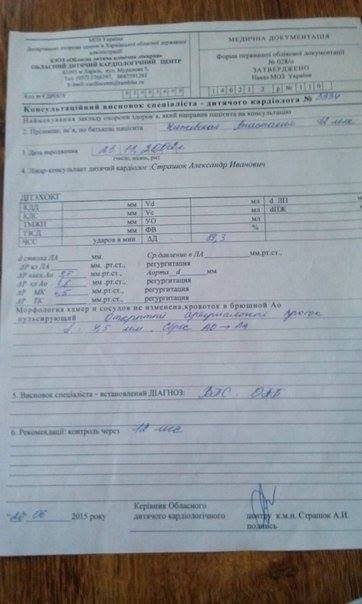 МОЗ України
Департамент охорони здоров'я Харківської обласної державної адміністрації
КЗОЗ «Обласна дитяча клінічна лікарня»
ОБЛАСНИЙ ДИТЯЧИЙ КАРДІОЛОГІЧНИЙ ЦЕНТР
61093 м.Харків, вул. Муранова 5,
МЕДИЧНА ДОКУМЕНТАЦІЯ
Форма первинної облікової документації
№ 028/о
ЗАТВЕРДЖЕНО
Наказ МОЗ України
14 02 2012 р № 110
Консультаційний висновок спеціаліста - дитячого кардіолога №
Найменування закладу охорони здоров'я, який направив пацієнта на консультацію
2. Прізвище, ім'я, по батькові пацієнта 12 лет
3. Дата народження 25.11.2002г.
(число, місяць, рік)
4. Лікар-консультант дитячий кардіолог: Страшок Александр Иванович
ДІТАХОКГ
КДД мм Vd мл d ЛП
КДС мм Vc мл dПЖ
ТМЖП мм УО мл
ТЗСД мм ФВ %
ЧСС ударов в мин ДД 19,3
d ствола ЛА мм. Ср.давление в ЛА мм.рт.ст.,
ΔР кл ЛА мм.рт.ст., регургитация
ΔР нисх Ао мм.рт.ст., Аорта d мм.
ΔР кл Ао мм.рт.ст., регургитация
ΔР МК мм.рт.ст., регургитация
ΔР ТК мм.рт.ст., регургитация
Морфология камер и сосудов не изменена,кровоток в брюшной Ао
пульсирующий Открытый артериальный проток
d - 4,5 мм. Сброс АО → ЛА
5. Висновок спеціаліста - встановлений ДІАГНОЗ: ВПС. ОАП
6. Рекомендації: контроль через 12 мес
06 2015 року
Керівник Обласного
дитячого кардіологічного центру к.м.н. Страшок А.И.
подпись